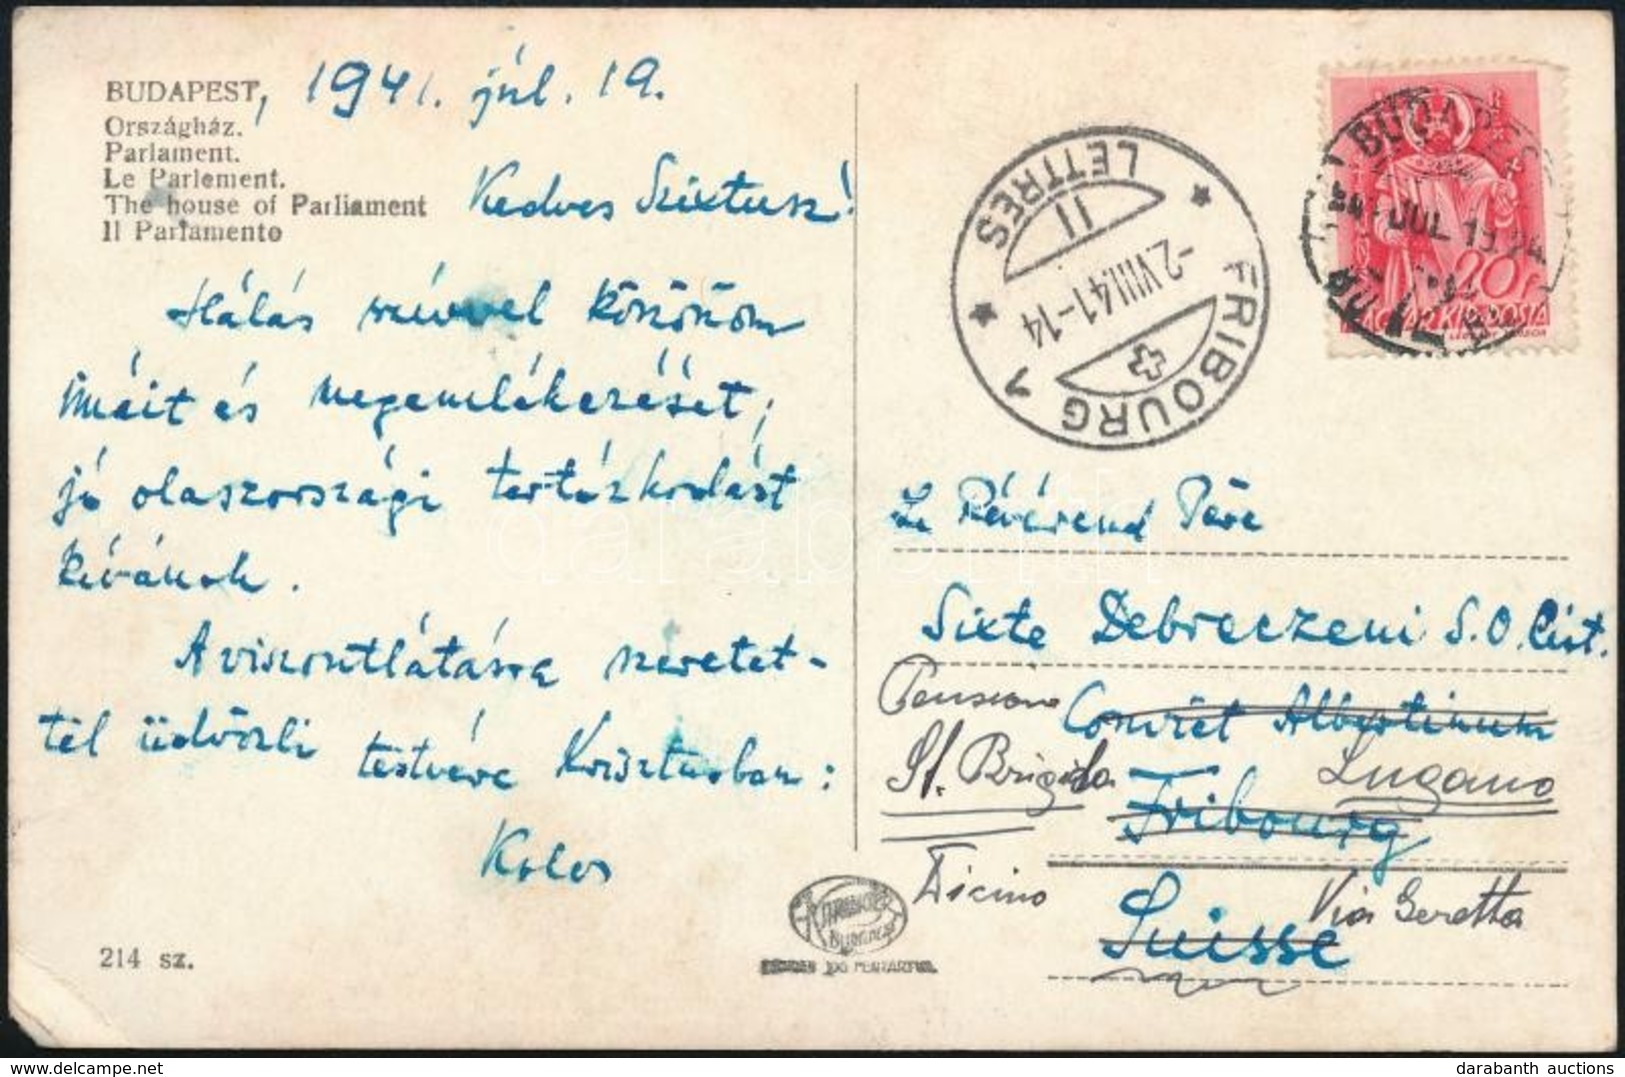 BUDAPEST, 1941. júl. 19.
Országház.
Parlament.
Le Parlement.
The house of Parliament
Il Parlamento
Kedves Szixtusz!
Hálás szívvel köszönöm
imáit és megemlékezését;
jó olaszországi tartózkodást
kívánok.
A viszontlátásra szeretet-
tel üdvözli testvére Krisztusban:
Kolos
214 sz.
BUDAPEST
JUL 19
20
MAGYAR KIR. POSTA
FRIBOURG 1
LETTRES
II
-2.VIII.41-14
Le Révérend Père
Sixte Debreczeni S.O.Cist.
Convict Albertinum
Fribourg
Suisse
Pension
St. Brigida
Lugano
Ticino
Via Geretta
BUDAPEST
darabanth
darabanth auctions
delcampe.net